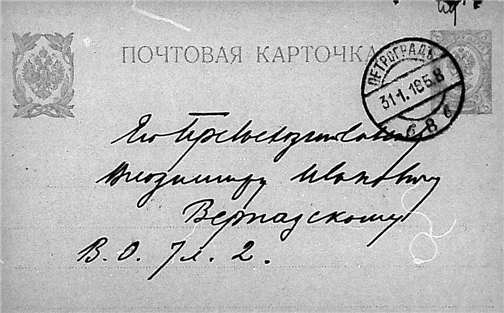 ПОЧТОВАЯ КАРТОЧКА
ПЕТРОГРАДЪ
31.1.16 5.8
6 8 6
Его Превосходительству
Владимиру Ивановичу
Вернадскому
В. О. 7 л. 2.